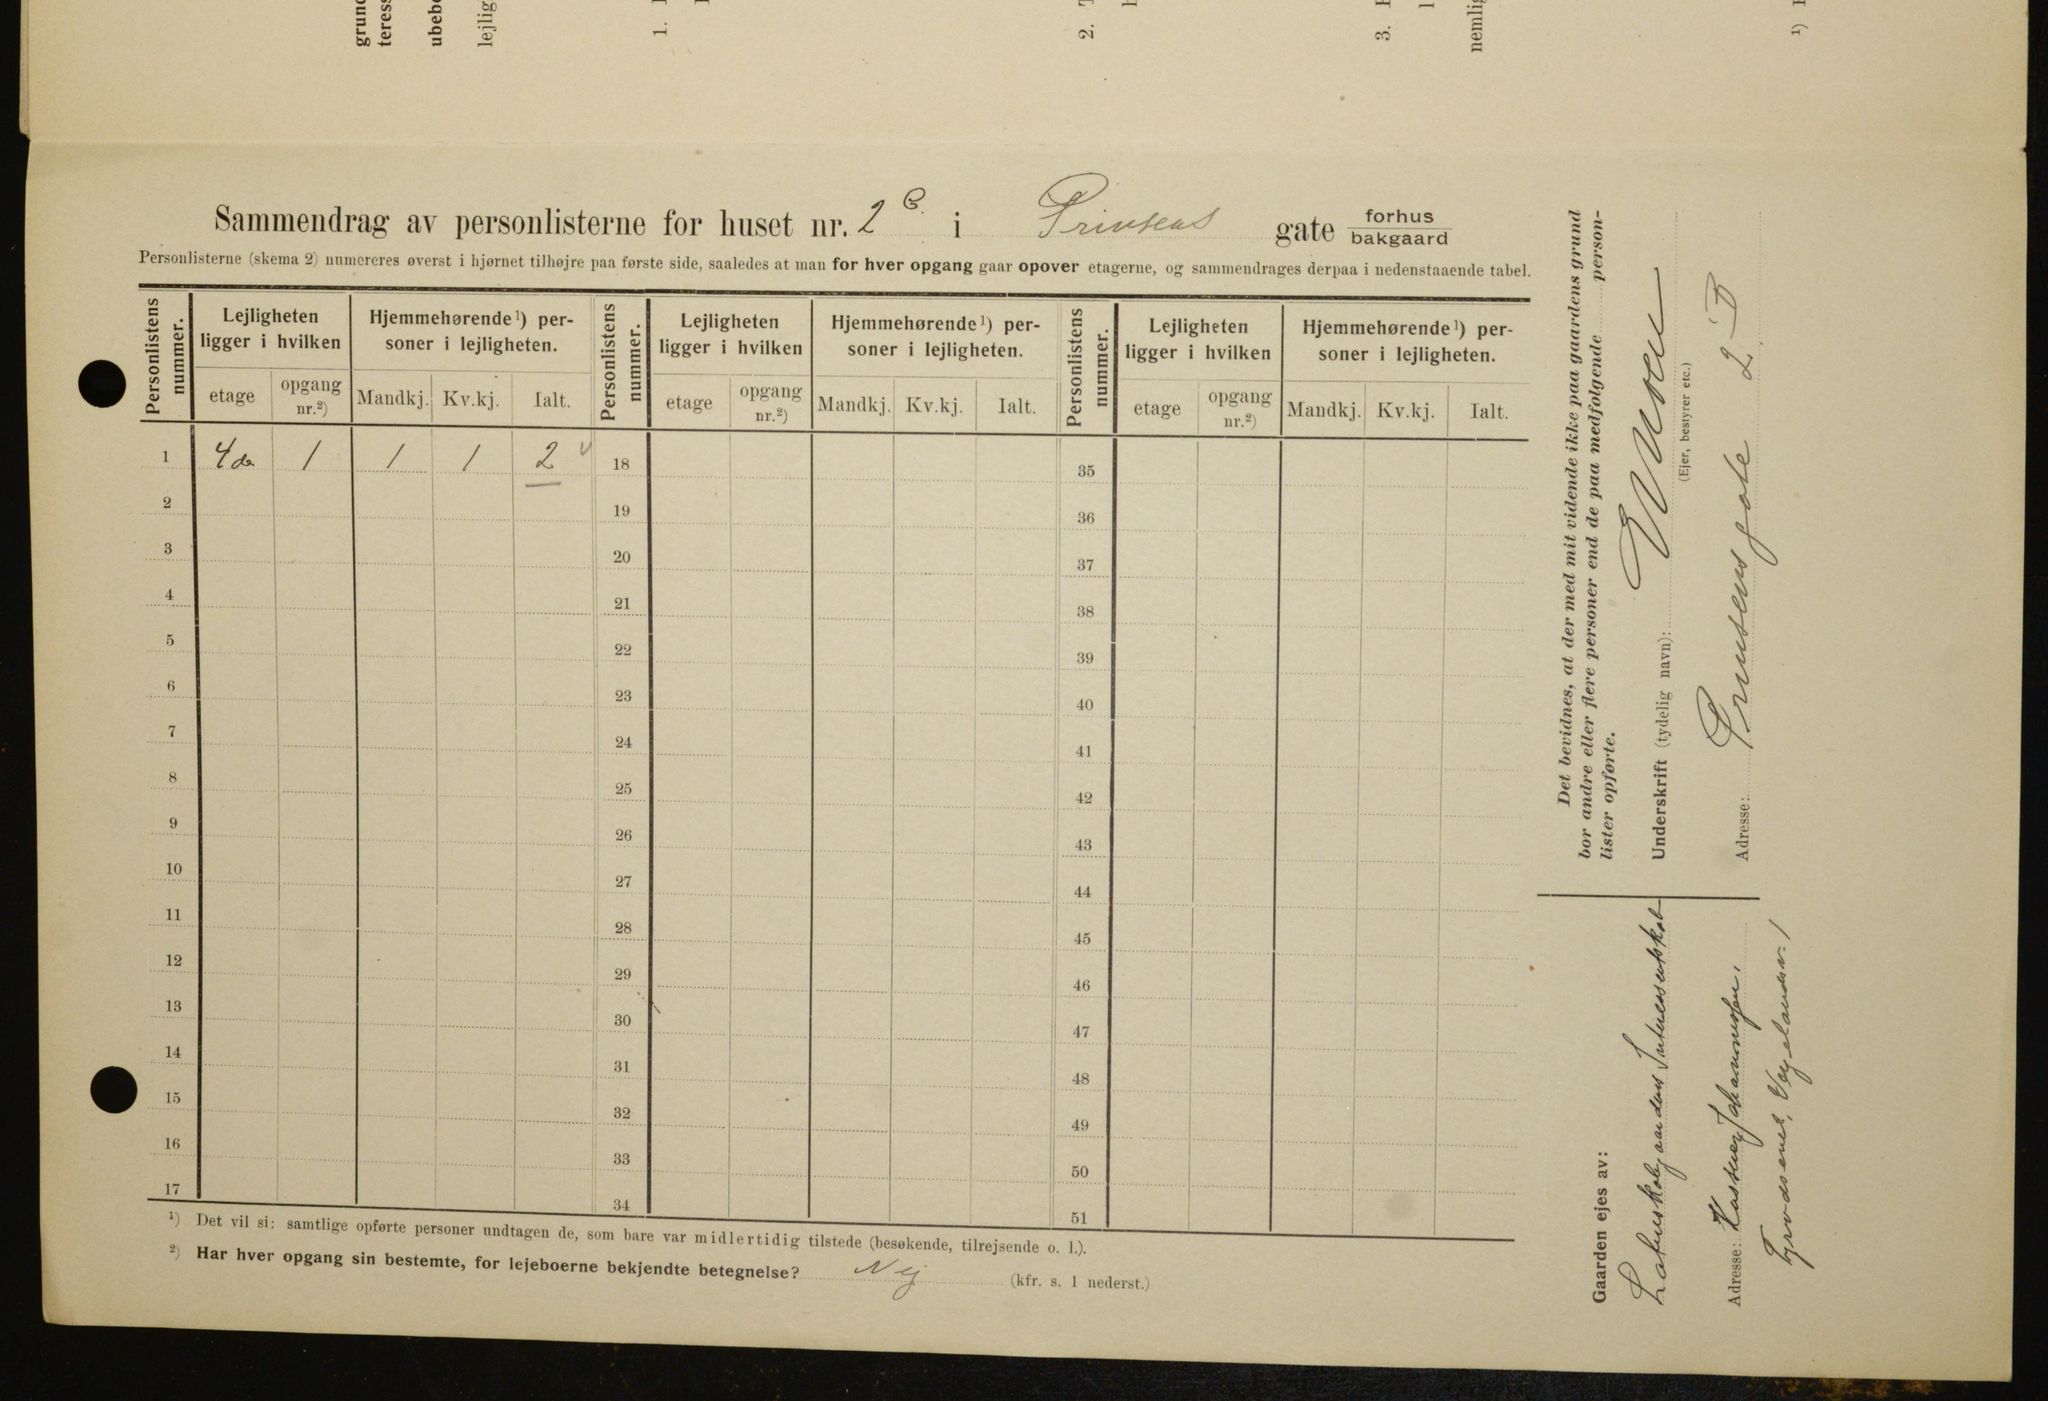 grund
teress
ubebo
lejlig
1.
2.
3.
nemlig
¹)
Sammendrag av personlisterne for huset nr. 2 C. i Prinsens gate forhus
bakgaard
Personlisterne (skema 2) numereres øverst i hjørnet tilhøjre paa første side, saaledes at man for hver opgang gaar opover etagerne, og sammendrages derpaa i nedenstaaende tabel.
Personlistens nummer. Lejligheten ligger i hvilken Hjemmehørende ¹) personer i lejligheten. Personlistens nummer. Lejligheten ligger i hvilken Hjemmehørende ¹) personer i lejligheten. Personlistens nummer. Lejligheten ligger i hvilken Hjemmehørende ¹) personer i lejligheten.
etage opgang nr.²) Mandkj. Kv.kj. Ialt. etage opgang nr.²) Mandkj. Kv.kj. Ialt. etage opgang nr.²) Mandkj. Kv.kj. Ialt.
1 4de 1 1 1 2 18 35
2 19 36
3 20 37
4 21 38
5 22 39
6 23 40
7 24 41
8 25 42
9 26 43
10 27 44
11 28 45
12 29 46
13 30 47
14 31 48
15 32 49
16 33 50
17 34 51
¹) Det vil si: samtlige opførte personer undtagen de, som bare var midlertidig tilstede (besøkende, tilrejsende o. l.).
²) Har hver opgang sin bestemte, for lejeboerne bekjendte betegnelse? Nej (kfr. s. 1 nederst.)
Det bevidnes, at der med mit vidende ikke paa gaardens grund
bor andre eller flere personer end de paa medfølgende person-
lister opførte.
Underskrift (tydelig navn):
(Ejer, bestyrer etc.)
Adresse: Prinsens gate 2 B
Gaarden ejes av:
Latinskolegaardens Interessentskab
Adresse: Kasserer Johannessen,